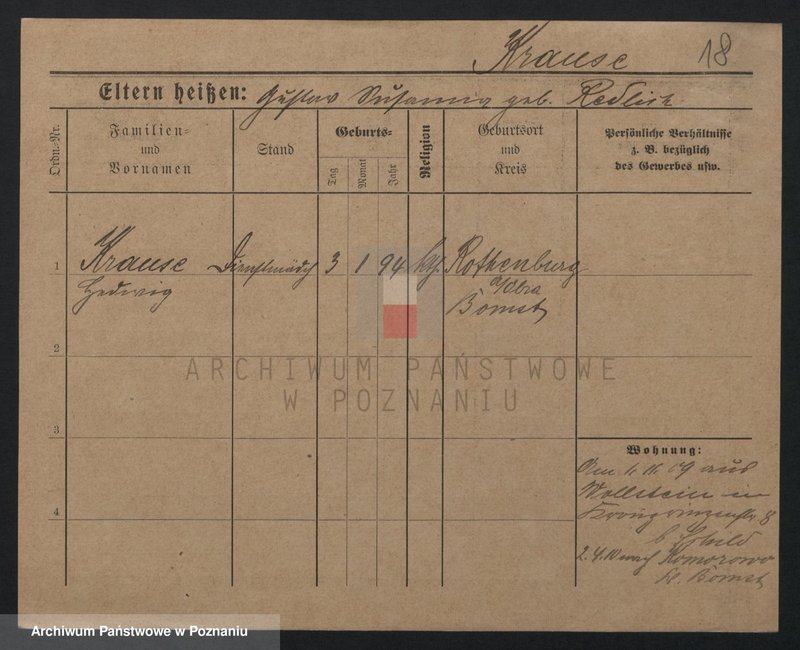 Krause 18
Eltern heißen: Gustav Susanna geb. Redlich
Ordn.-Nr. Familien- und Vornamen Stand Geburts- Tag Monat Jahr Religion Geburtsort und Kreis Persönliche Verhältnisse z. B. bezüglich des Gewerbes usw.
1 Krause Dienstmädch 3 1 94 kth. Rothenburg
Hedwig a/Obra
Bomst
2
ARCHIWUM PAŃSTWOWE
W POZNANIU
3
Wohnung:
Am 1. 11. 09 aus
Wollstein in
4 Kronprinzenstr. 8
b.
2.4.10 nach Komorowo
Kr. Bomst
Archiwum Państwowe w Poznaniu